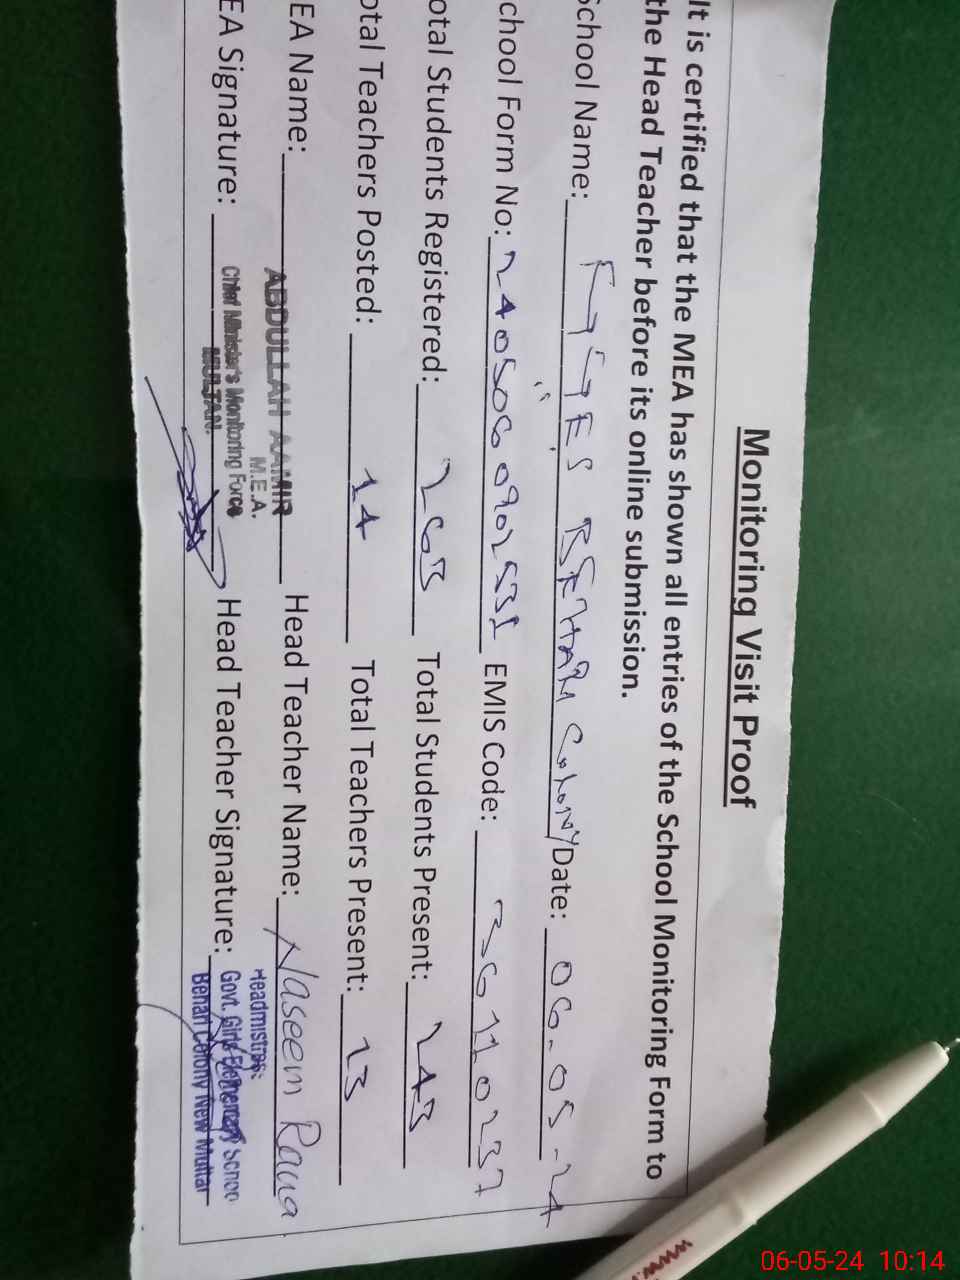 Monitoring Visit Proof
It is certified that the MEA has shown all entries of the School Monitoring Form to
the Head Teacher before its online submission.
School Name: COLONY Date: 06-05-24
chool Form No: EMIS Code: 36110237
otal Students Registered: 263 Total Students Present: 243
otal Teachers Posted: 14 Total Teachers Present: 13
EA Name: ABDULLAH AAMIR Head Teacher Name: Naseem Rana
M.E.A.
EA Signature: Chief Minister's Monitoring Force Head Teacher Signature:
MULTAN.
Headmistress
Govt. Girls Elementary Schoo
Behari Colony New Multan
06-05-24 10:14